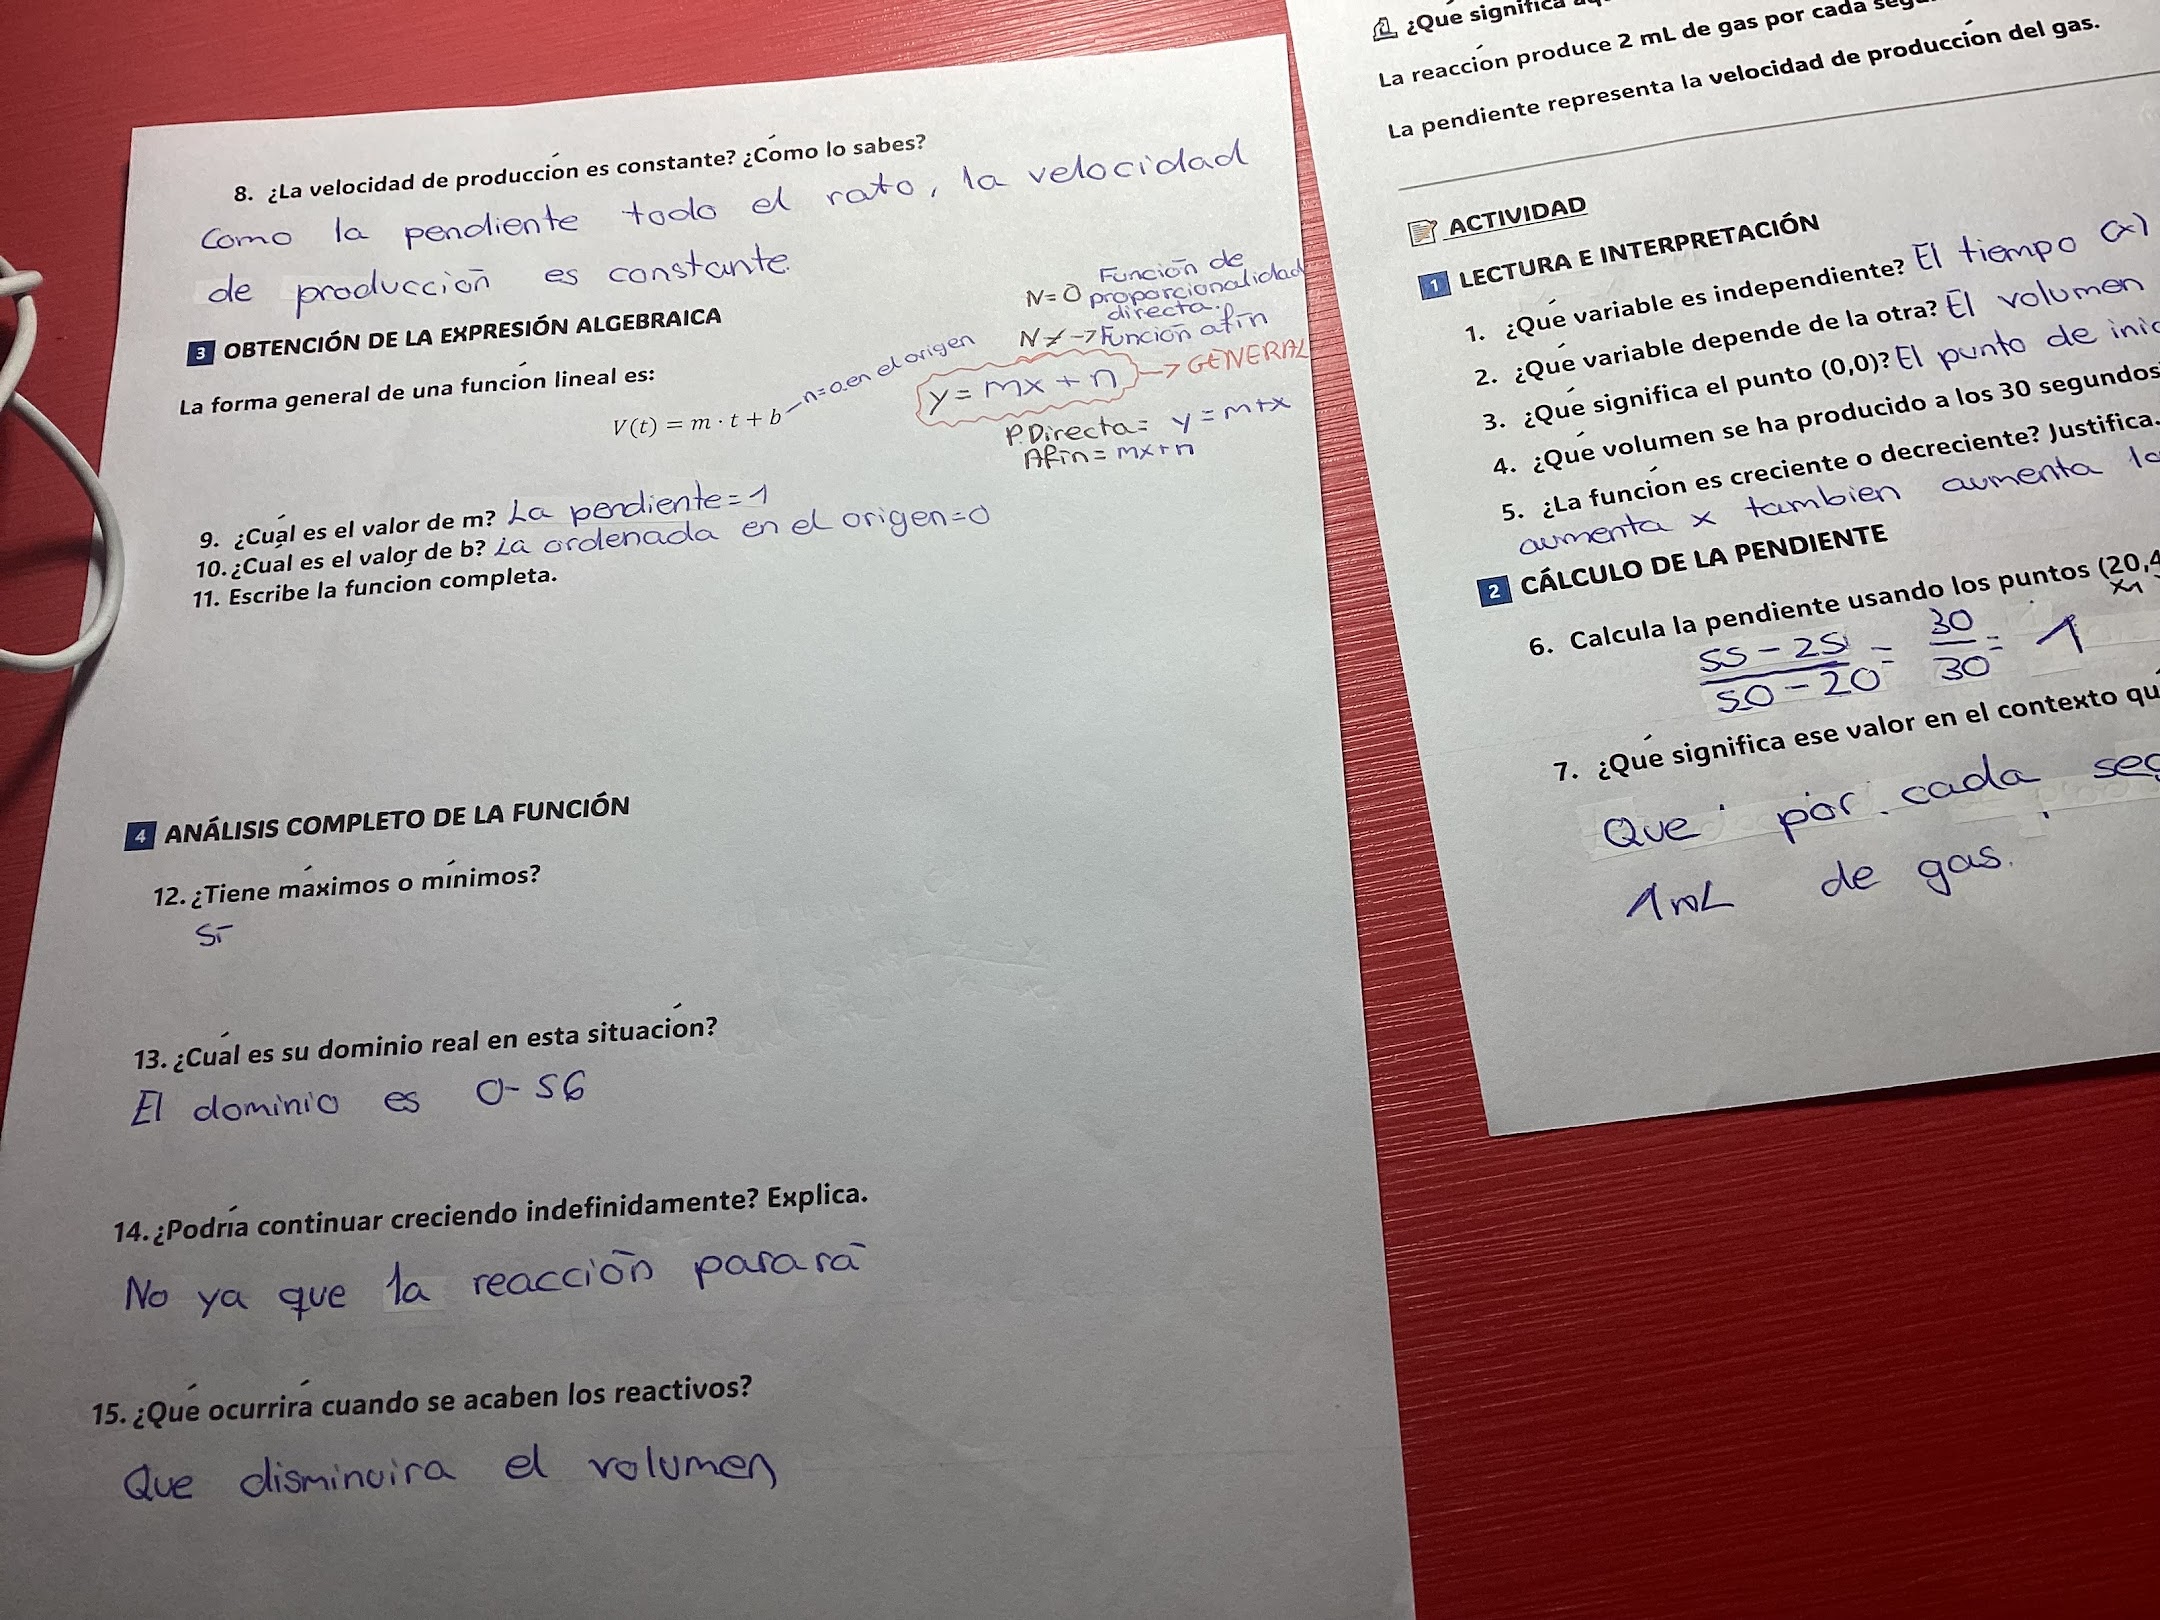 8. ¿La velocidad de producción es constante? ¿Cómo lo sabes?
Como la pendiente todo el rato, la velocidad
de producción es constante.
3 OBTENCIÓN DE LA EXPRESIÓN ALGEBRAICA
La forma general de una función lineal es:
V(t) = m · t + b
n=0.en el origen
N=0 Función de
proporcionalidad
directa.
N≠ -> Función afín
y = mx + n -> GENERAL
P.Directa= y = m+x
Afín = mx+n
9. ¿Cuál es el valor de m? La pendiente=1
10. ¿Cuál es el valor de b? La ordenada en el origen=0
11. Escribe la función completa.
4 ANÁLISIS COMPLETO DE LA FUNCIÓN
12. ¿Tiene máximos o mínimos?
Sí
13. ¿Cuál es su dominio real en esta situación?
El dominio es 0-56
14. ¿Podría continuar creciendo indefinidamente? Explica.
No ya que la reacción parará
15. ¿Qué ocurrirá cuando se acaben los reactivos?
Que disminuira el volumen
¿Qué significa
La reacción produce 2 mL de gas por cada
La pendiente representa la velocidad de producción del gas.
ACTIVIDAD
1 LECTURA E INTERPRETACIÓN
1. ¿Qué variable es independiente? El tiempo (x)
2. ¿Qué variable depende de la otra? El volumen
3. ¿Qué significa el punto (0,0)? El punto de
4. ¿Qué volumen se ha producido a los 30 segundos
5. ¿La función es creciente o decreciente? Justifica.
aumenta x tambien aumenta
2 CÁLCULO DE LA PENDIENTE
6. Calcula la pendiente usando los puntos (20,4
x1
55-25/50-20 = 30/30 = 1
7. ¿Qué significa ese valor en el contexto
Que por cada
1 mL de gas.